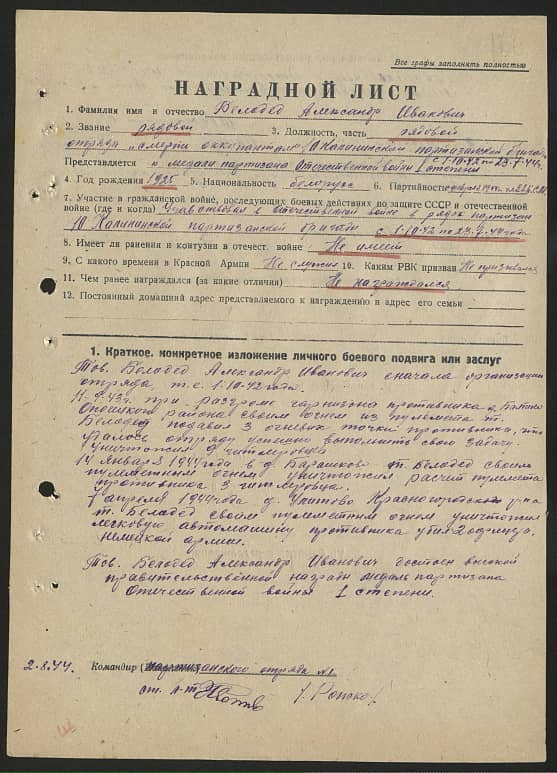 Все графы заполнять полностью
НАГРАДНОЙ ЛИСТ
1. Фамилия имя и отчество Белодед Александр Иванович
2. Звание рядовой 3. Должность, часть рядовой
отряда „смерть оккупантам" 10 Калининской партизанской бригады
Представляется к медали партизана Отечественной войны 1 степени с 1-10-42 по 23.7.44г.
4. Год рождения 1925 5. Национальность белорусс 6. Партийность
7. Участие в гражданской войне, последующих боевых действиях по защите СССР и отечественной
войне (где и когда) Участвовал в отечественной войне в рядах партизан
10 Калининской партизанской бригады с 1.10.42 по 23.7.44 года
8. Имеет ли ранения и контузии в отечест. войне Не имеет
9. С какого времени в Красной Армии Не служил 10. Каким РВК призван Не призывался
11. Чем ранее награждался (за какие отличия) Не награждался
12. Постоянный домашний адрес представляемого к награждению и адрес его семьи
1. Краткое, конкретное изложение личного боевого подвига или заслуг
Тов. Белодед Александр Иванович сначала организации
отряда, т.е. с 1-10-42 года.
43г. при разгроме гарнизона противника д.
Опочецкого района своим огнем из пулемета т.
Белодед подавил 3 огневых точки противника, что
дало отряду успешно выполнить свою задачу.
уничтожил гитлеровца.
14 января 1944 года в д. Барашково т. Белодед своим
пулеметным огнем уничтожил расчет пулемета
противника 3 гитлеровца.
1 апреля 1944 года д. Красногородского р-на
т. Белодед своим пулеметным огнем уничтожил
легковую автомашину противника убил 2 офицера
немецкой армии.
Тов. Белодед Александр Иванович достоин высокой
правительственной награды медаль партизана
Отечественной войны 1 степени.
2.8.44. Командир партизанского отряда №1
ст. л-т